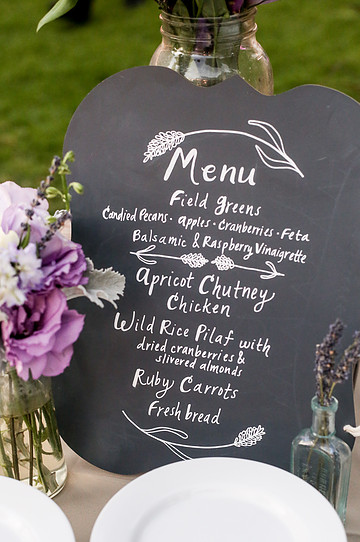 Menu
Field greens
Candied Pecans · Apples · Cranberries · Feta
Balsamic & Raspberry Vinaigrette
Apricot Chutney
Chicken
Wild Rice Pilaf with
dried cranberries &
slivered almonds
Ruby Carrots
Fresh bread